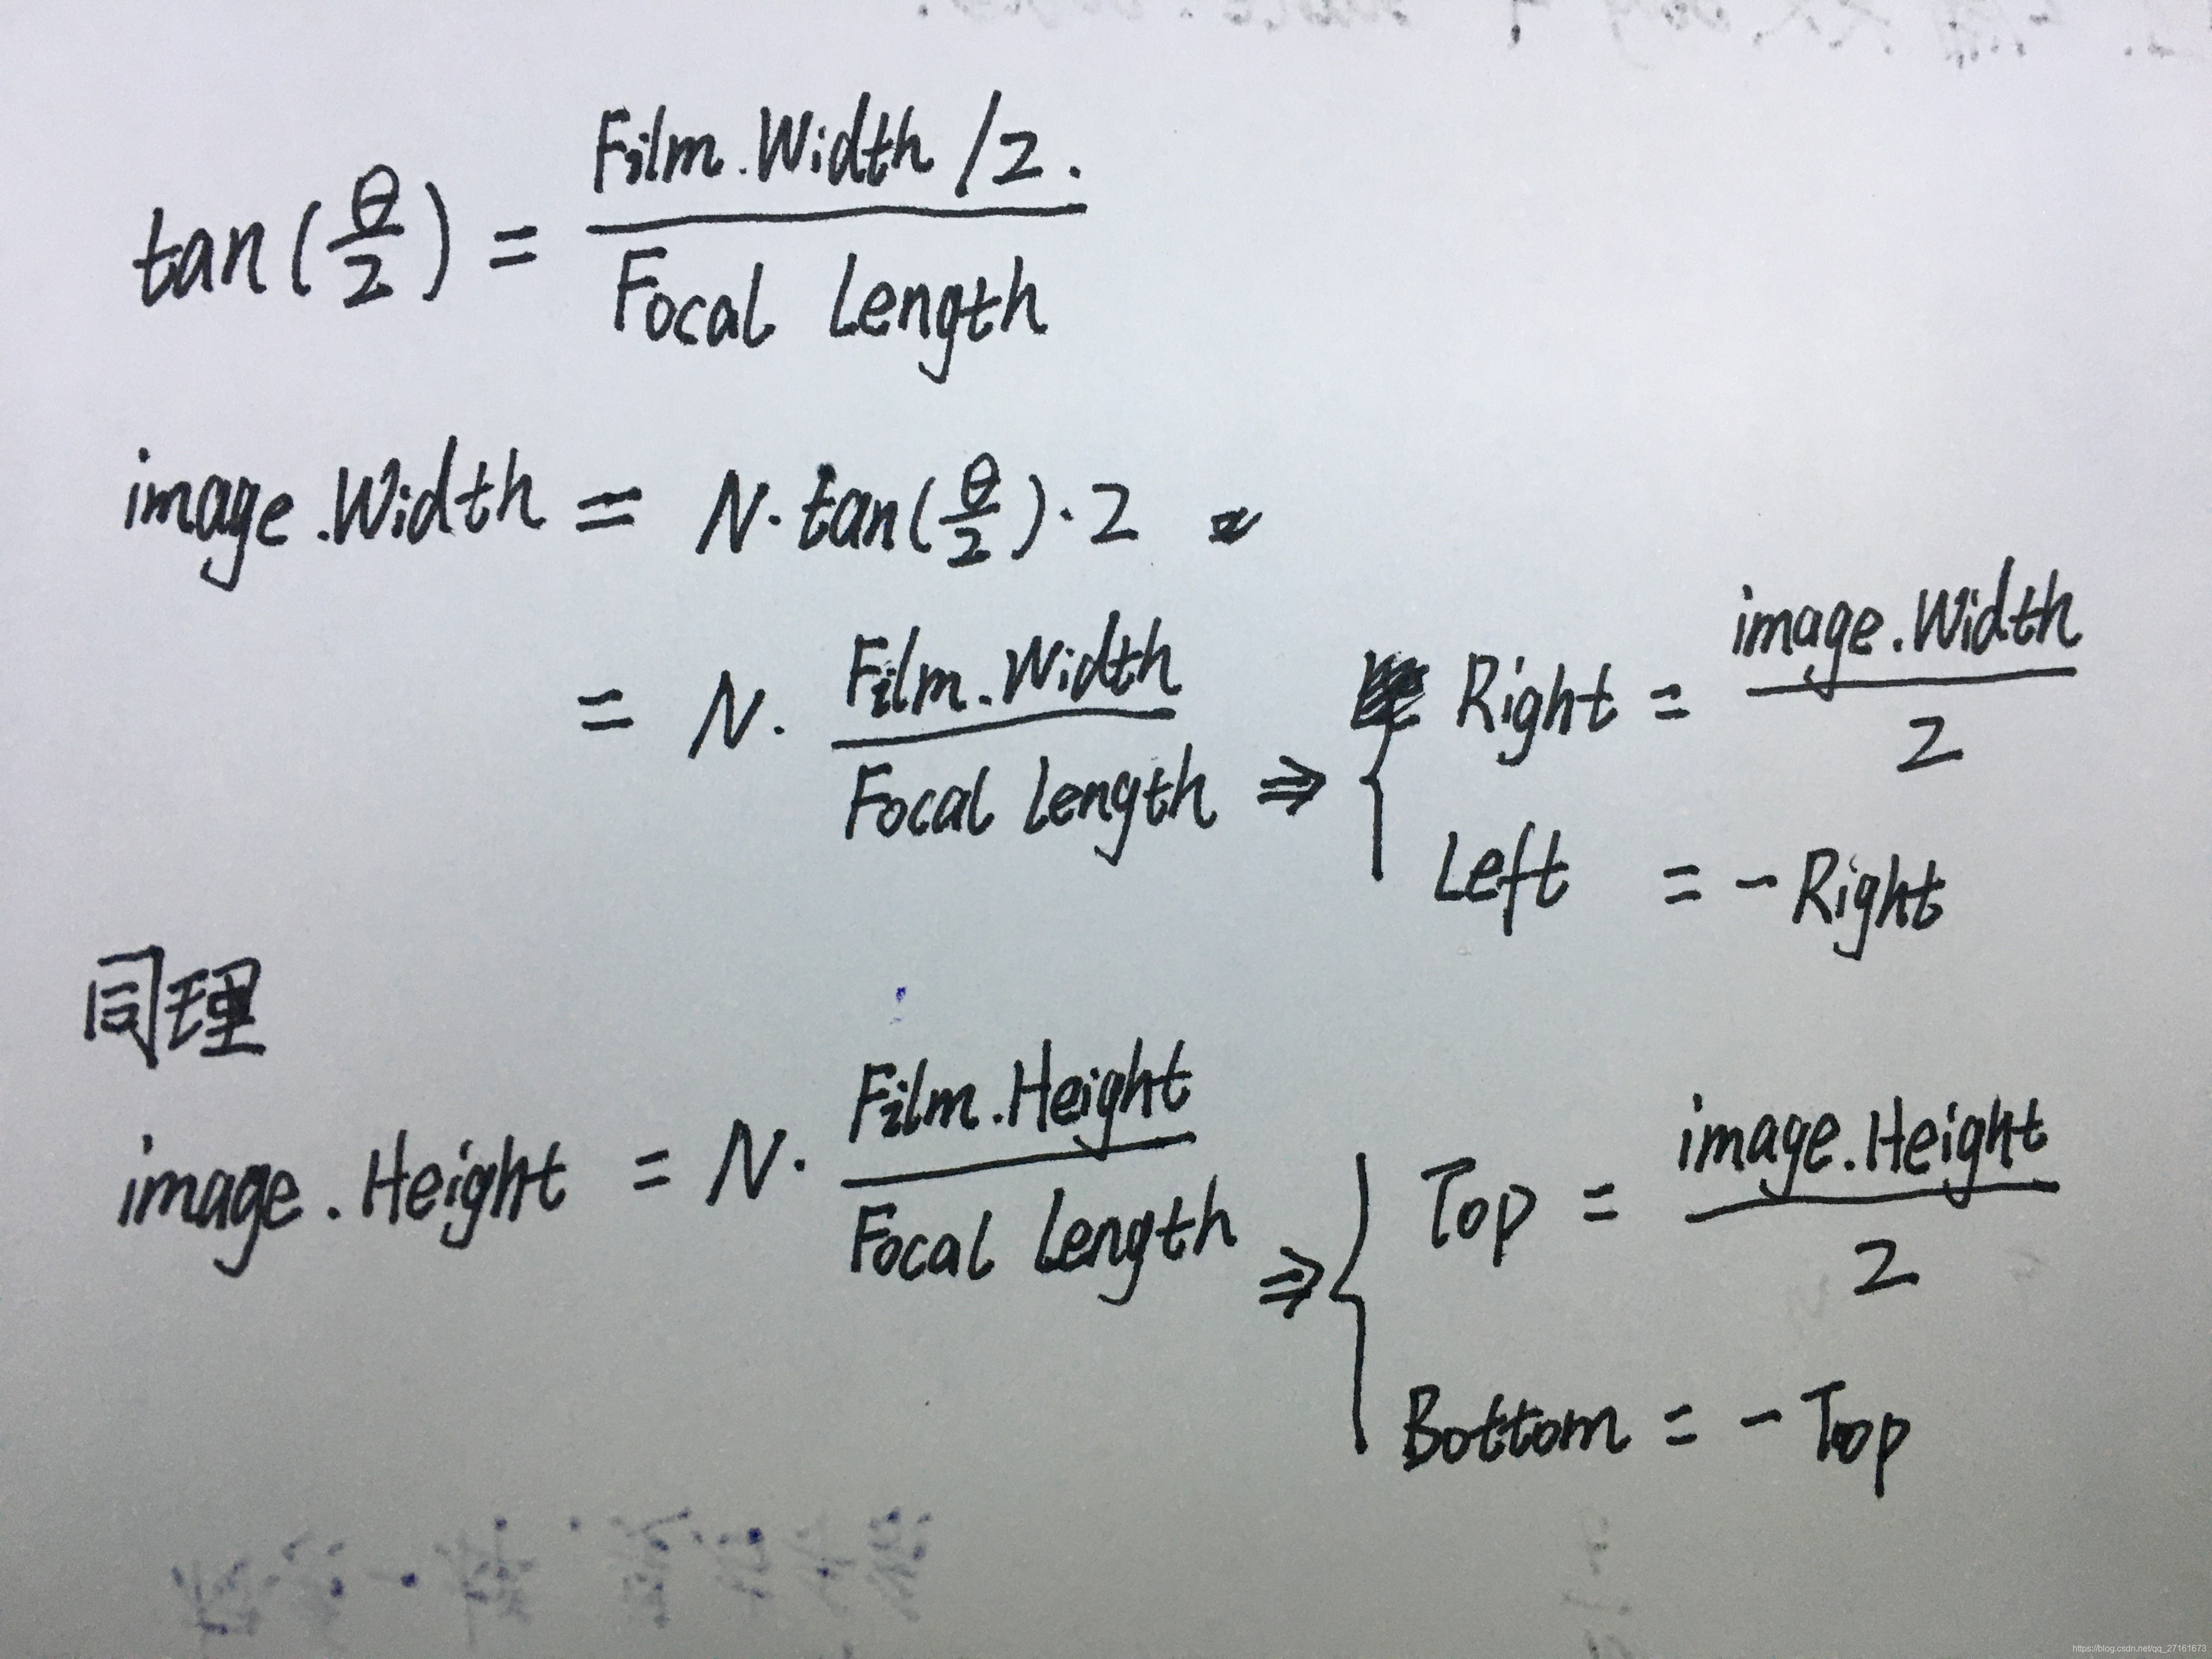 tan(θ/2) = Film.Width/2. / Focal Length
image.Width = N·tan(θ/2)·2
= N· Film.Width / Focal Length ⇒ { Right = image.Width / 2
Left = -Right
同理
image.Height = N· Film.Height / Focal Length ⇒ { Top = image.Height / 2
Bottom = -Top
https://blog.csdn.net/qq_27161673